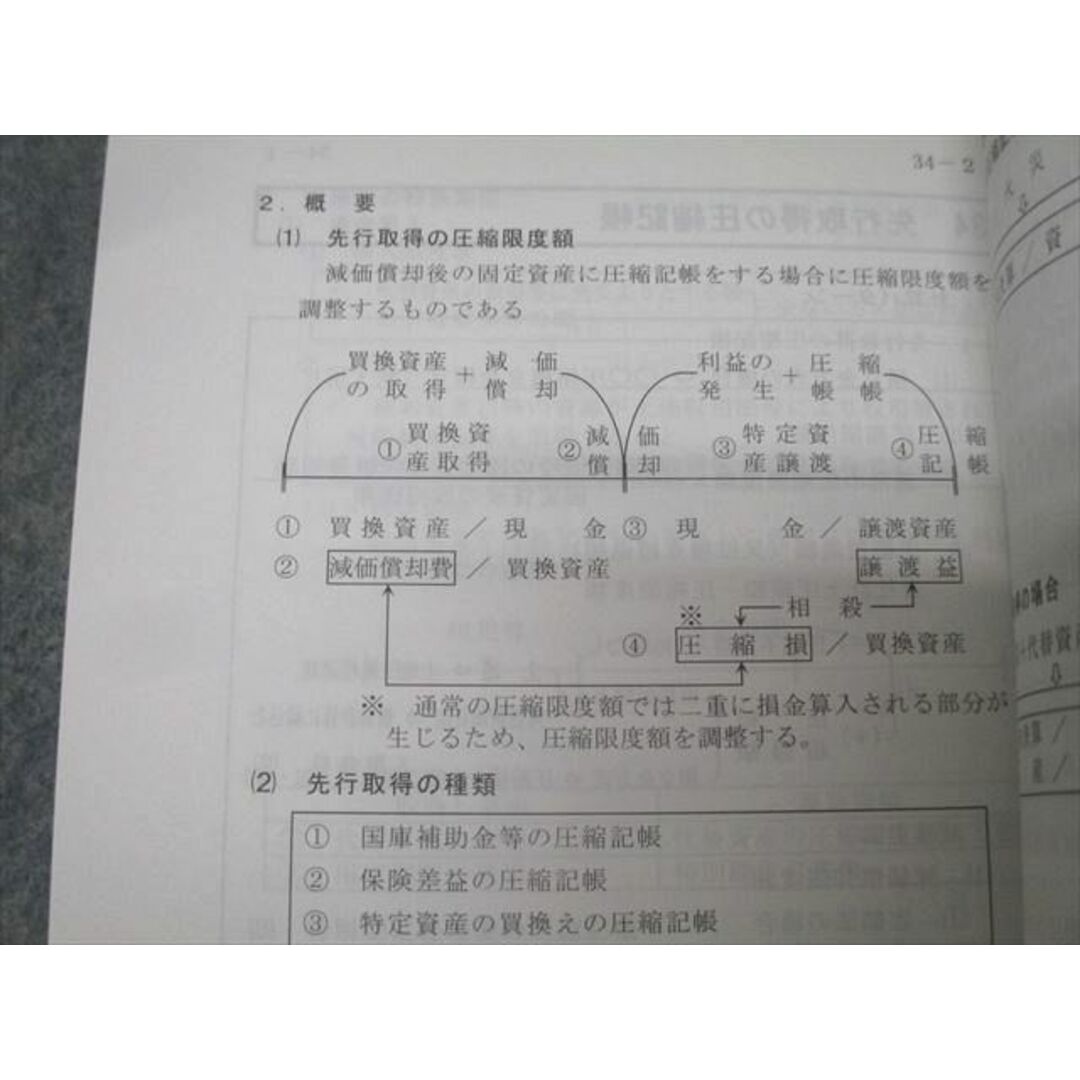 34－2
2．概　要
(1)　先行取得の圧縮限度額
減価償却後の固定資産に圧縮記帳をする場合に圧縮限度額を
調整するものである
買換資産の取得＋減価償却
利益の発生＋圧縮帳帳
①買換資産取得　②減価償却　③特定資産譲渡　④圧縮記帳
①　買換資産／現　金　③　現　金／譲渡資産
②　減価償却費／買換資産　譲渡益
※　相殺
④　圧縮損／買換資産
※　通常の圧縮限度額では二重に損金算入される部分が
生じるため、圧縮限度額を調整する。
(2)　先行取得の種類
①　国庫補助金等の圧縮記帳
②　保険差益の圧縮記帳
③　特定資産の買換えの圧縮記帳
の場合
代替資